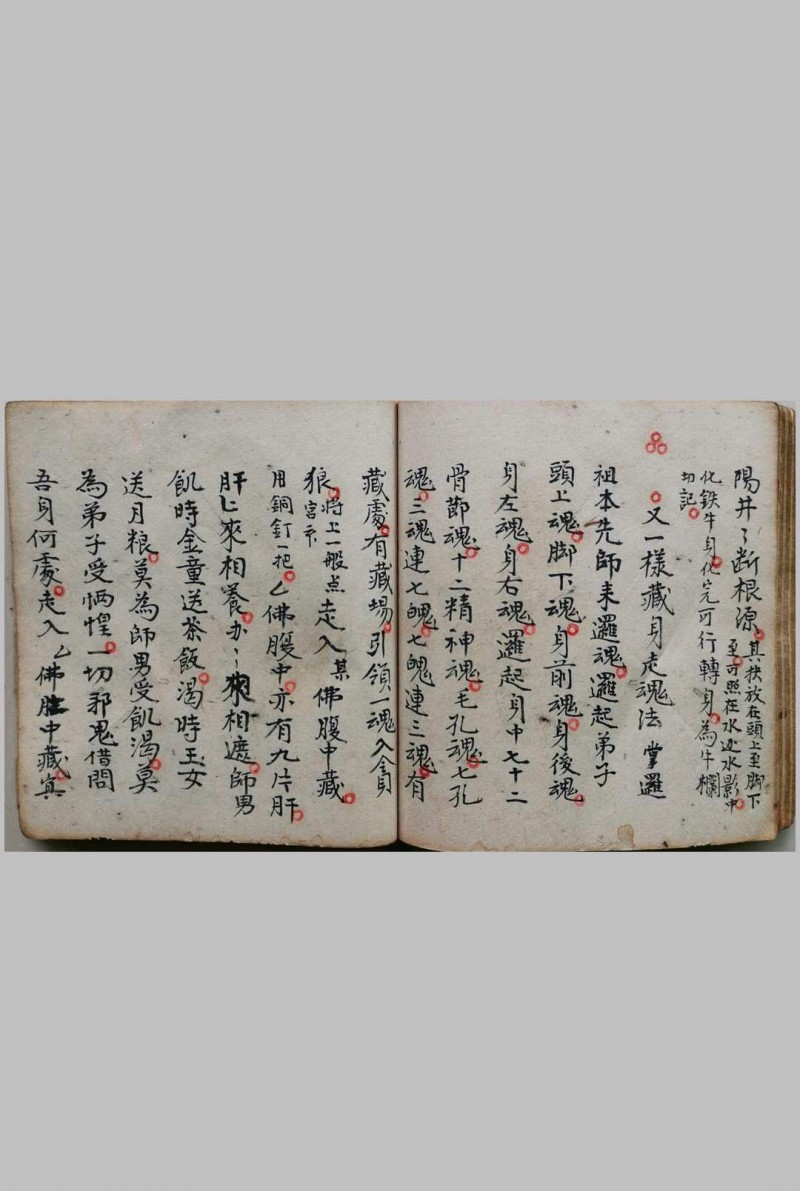 陽井々断根源其抉放在頭上至脚下
至可照在水边水影中
化鉄牛身化完可行轉身為牛欄
切記
又一樣藏身走魂法 掌邏
祖本先師来邏魂邏起弟子
頭上魂脚下魂身前魂身後魂
身左魂身右魂邏起身中七十二
骨節魂十二精神魂毛孔魂七孔
魂三魂連七魄七魄連三魂有
藏處有藏場引領一魂入貪
狼宮将上一般点走入某佛腹中藏
用銅釘一把厶佛腹中亦有九片肝
肝上來相養办々來相遮師男
飢時金童送茶飯渴時玉女
送月粮莫為師男受飢渴莫
為弟子受恓惶一切邪鬼借問
吾身何處走入厶佛肚中藏真